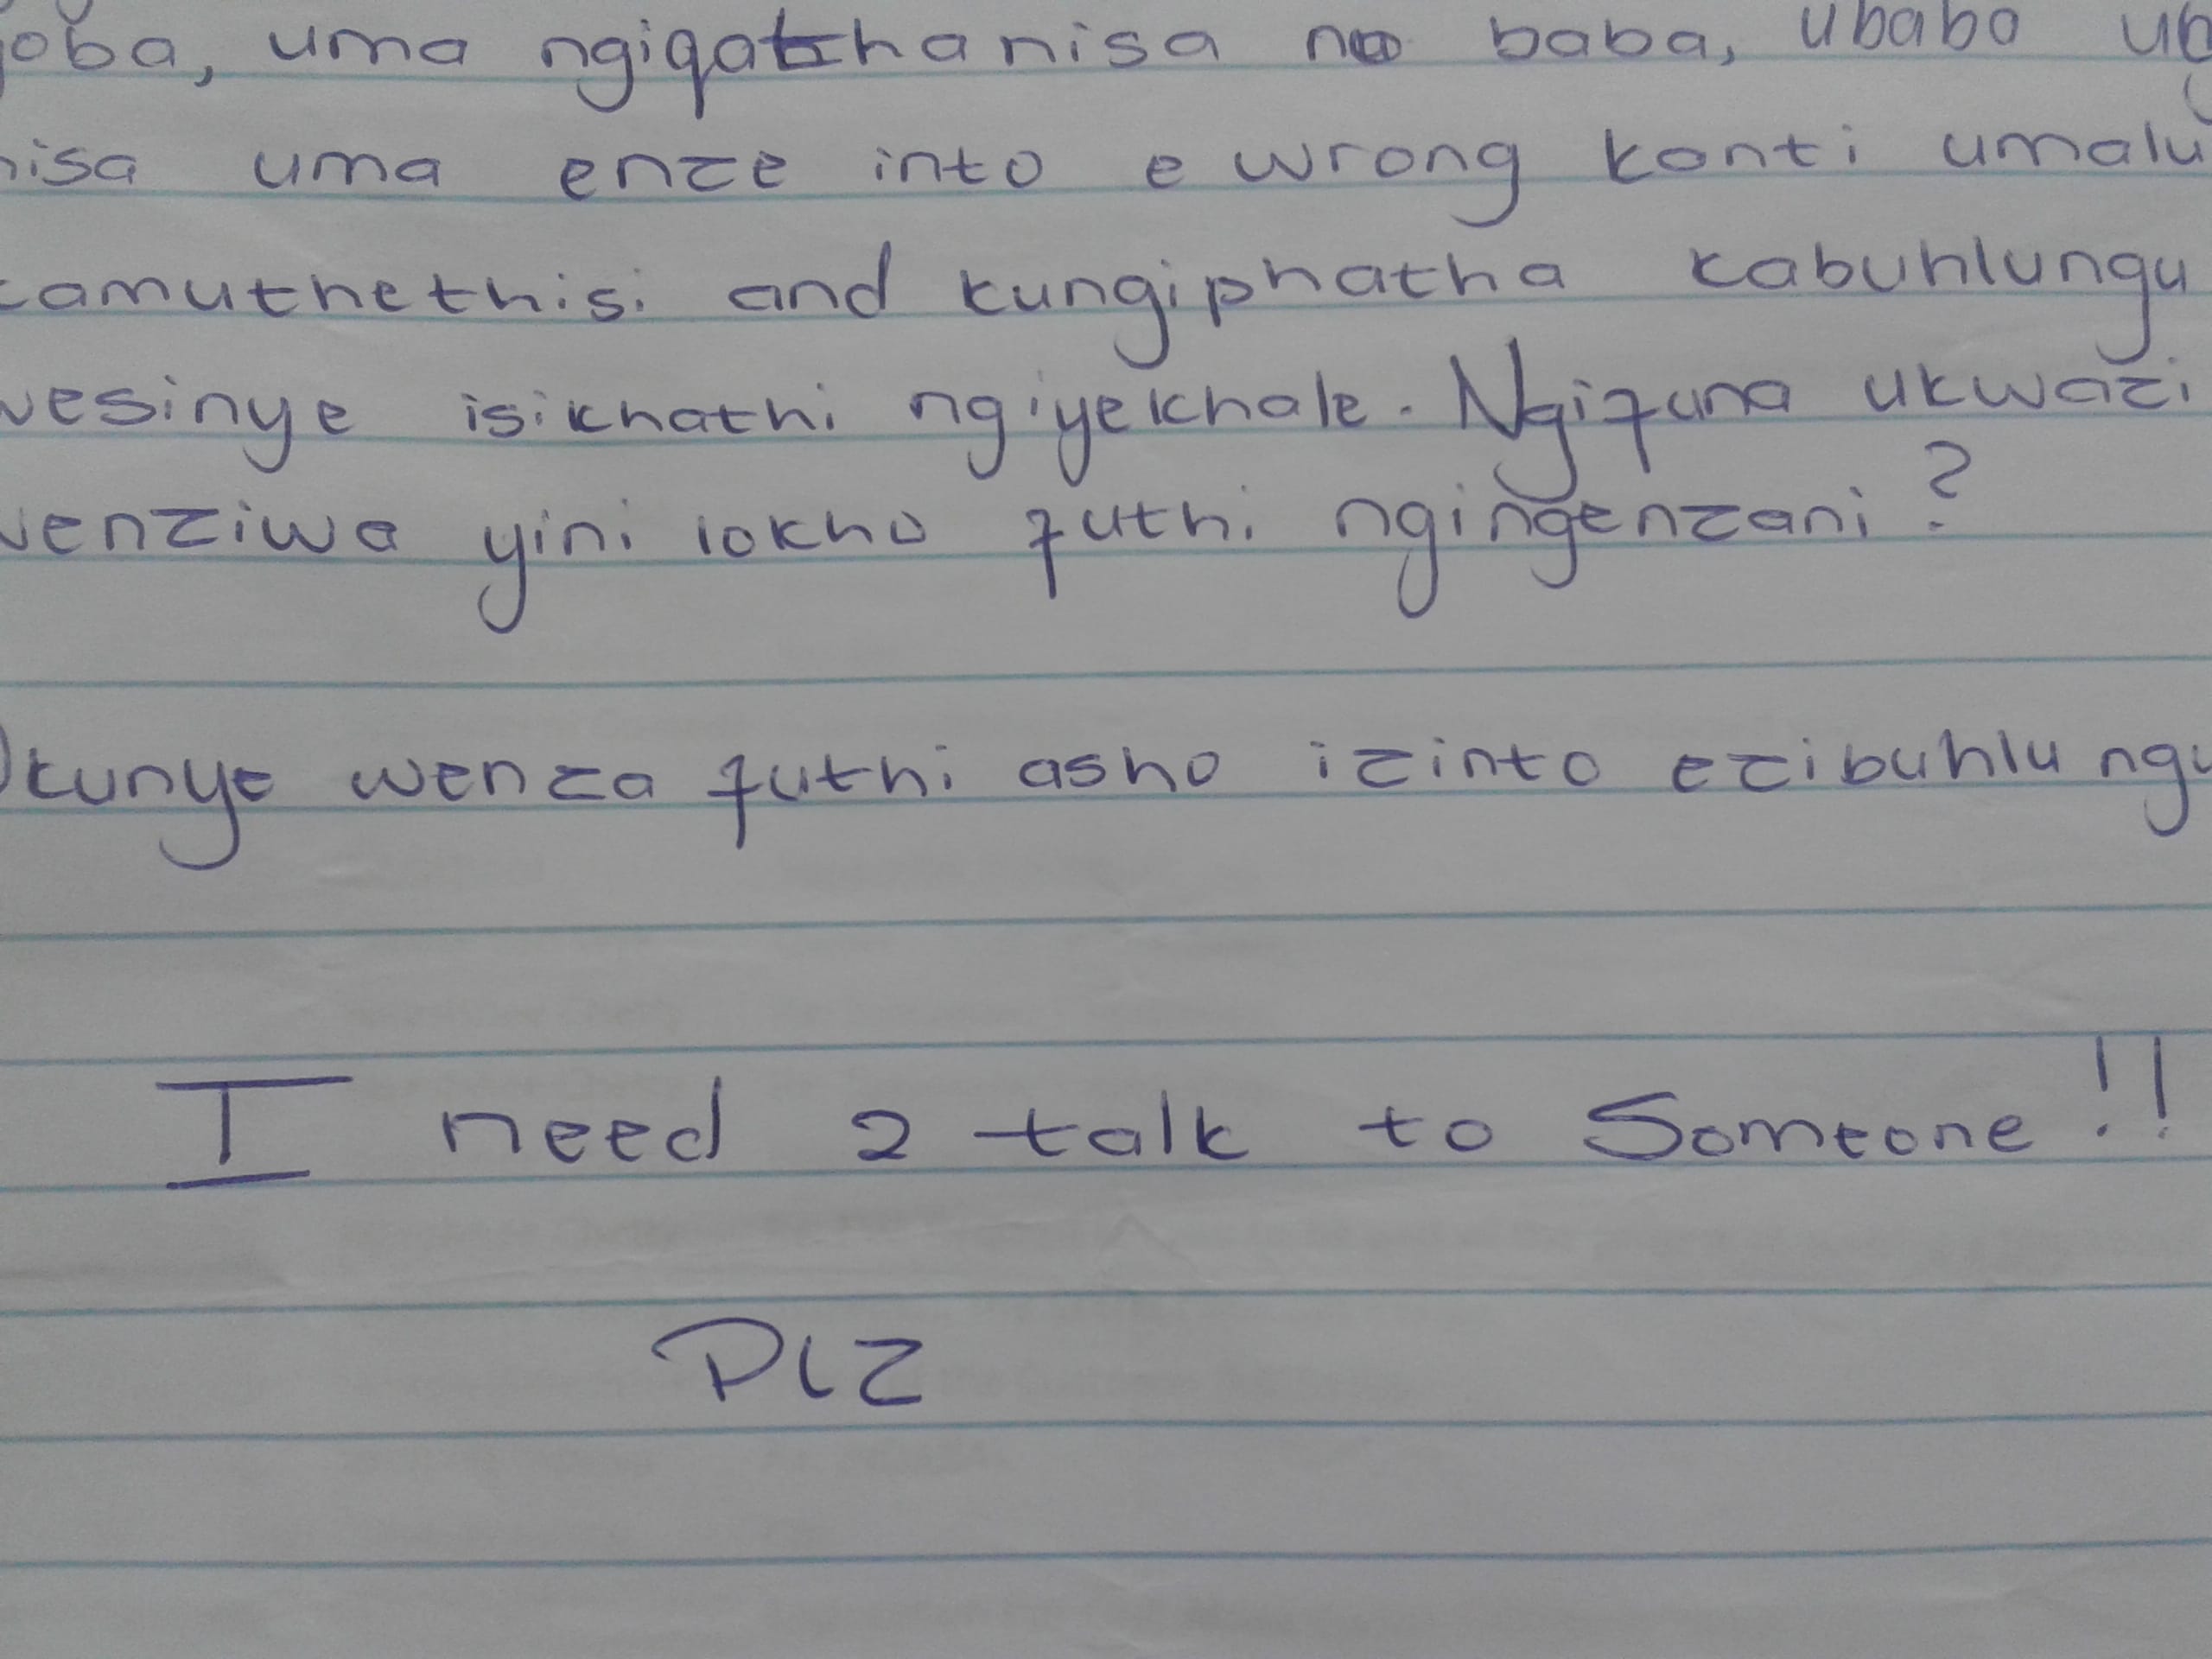 joba, uma ngiqathanisa no baba, ubaba ub
nisa uma enze into e wrong konti umalu
camuthethisi and kungiphatha kabuhlungu
wesinye isikhathi ngiyekhale. Ngifuna ukwazi
wenziwa yini lokho futhi ngingenzani?
Okunye wenza futhi asho izinto ezibuhlungu
I need 2 talk to Someone!!
Plz